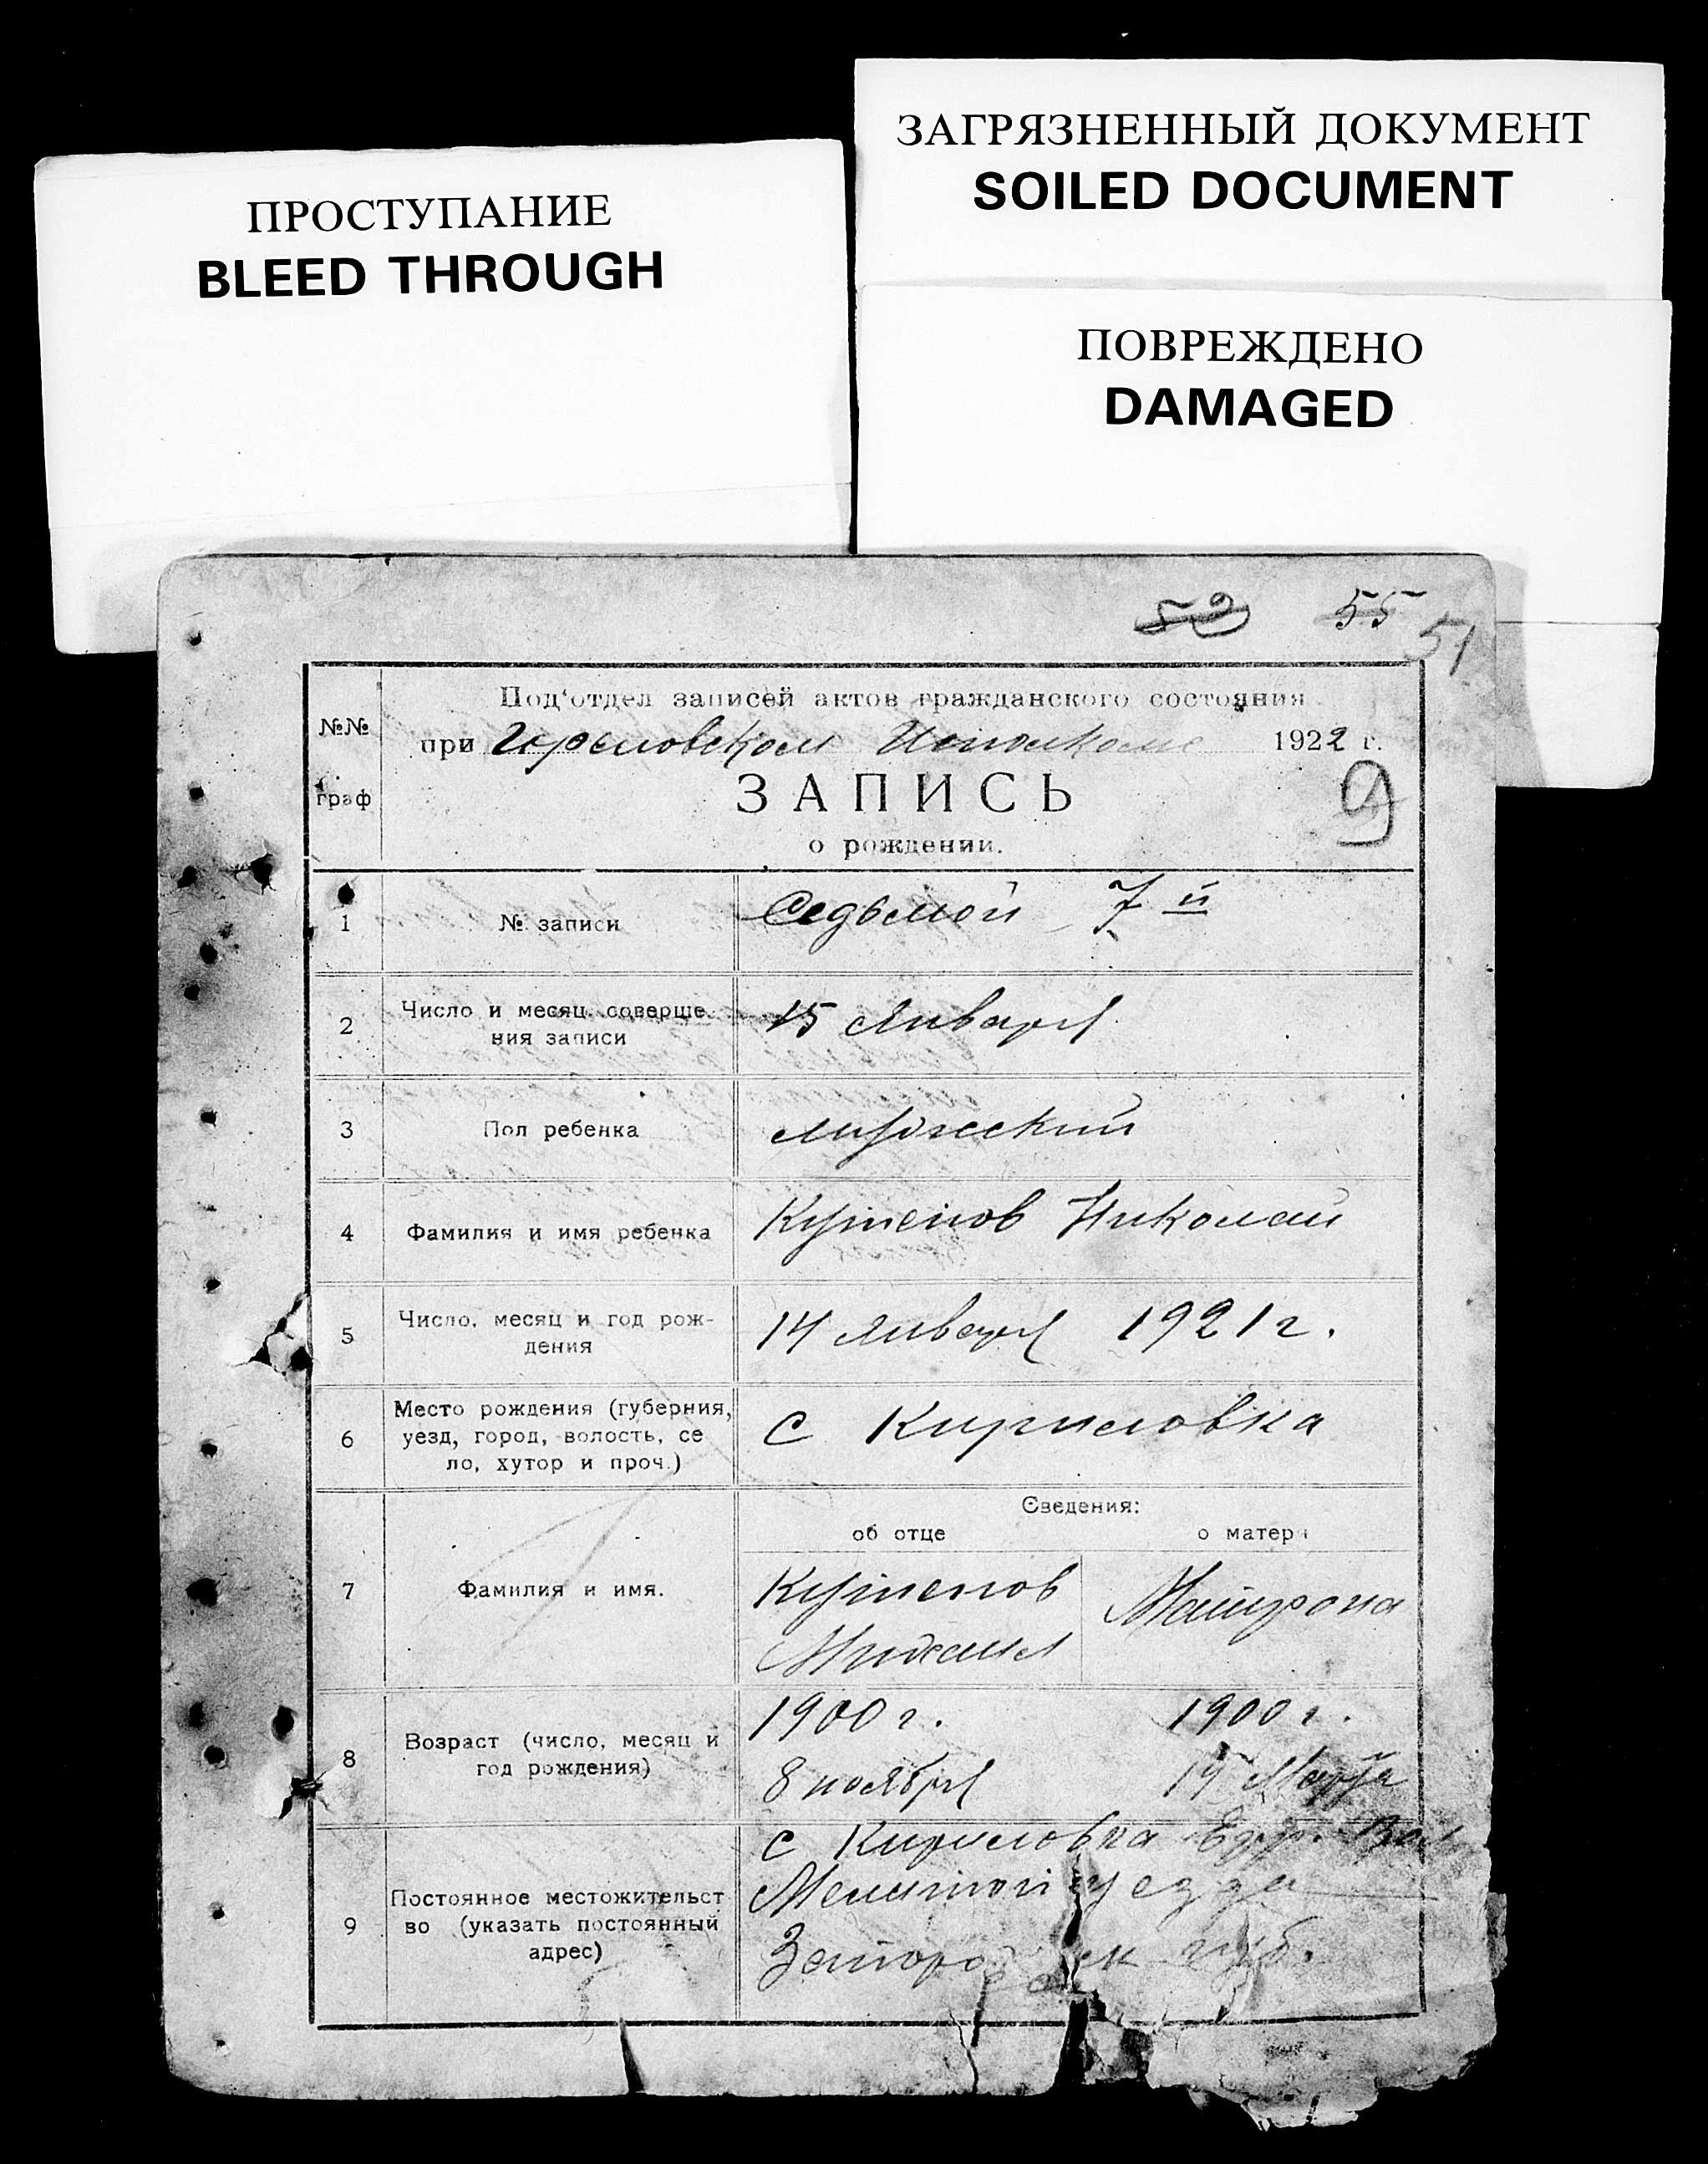 ЗАГРЯЗНЕННЫЙ ДОКУМЕНТ
SOILED DOCUMENT
ПРОСТУПАНИЕ
BLEED THROUGH
ПОВРЕЖДЕНО
DAMAGED
52 55 51
№№ граф
Под'отдел записей актов гражданского состояния
при Исполкоме 1922 г.
ЗАПИСЬ
9
о рождении.
1 № записи Седьмой 7й
2 Число и месяц соверше
ния записи 15 Января
3 Пол ребенка мужеский
4 Фамилия и имя ребенка Кутепов Николай
5 Число, месяц и год рож-
дения 14 Января 1921 г.
6 Место рождения (губерния,
уезд, город, волость, се
ло, хутор и проч.) с Кириловка
Сведения:
об отце о матери
7 Фамилия и имя. Кутепов
Михаил Матрона
8 Возраст (число, месяц и
год рождения) 1900 г. 1900 г.
8 ноября Марта
с Кириловка
9 Постоянное местожительст
во (указать постоянный
адрес) Мелитоп уезда
губ.